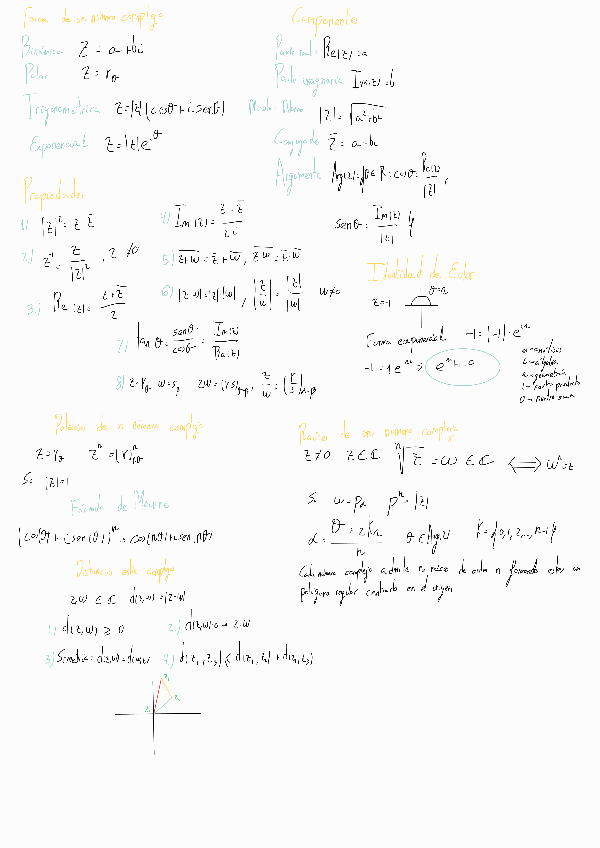 Forma de un número complejo
Binómica Z = a + bi
Polar Z = r_θ
Trigonométrica Z = |z|(cosθ + i senθ)
Exponencial Z = |z|e^{iθ}
Componentes
Parte real: Re(z) = a
Parte imaginaria Im(z) = b
|z| = √(a²+b²)
Conjugado z̄ = a - bi
Argumento Arg(z) = {θ ∈ R : cosθ = Re(z)/|z|,
senθ = Im(z)/|z|}
Propiedades
1) |z|² = z·z̄
2) z⁻¹ = z̄/|z|², z ≠ 0
3) Re(z) = (z+z̄)/2
4) Im(z) = (z-z̄)/2i
5) \overline{z+w} = z̄ + w̄, \overline{z·w} = z̄·w̄
6) |z·w| = |z|·|w|, |z/w| = |z|/|w| w≠0
7) tanθ = senθ/cosθ = Im(z)/Re(z)
8) z = r_α w = s_β zw = (rs)_{α+β}, z/w = (r/s)_{α-β}
Identidad de Euler
z = -1 θ = π
Forma exponencial -1 = |-1|·e^{iπ}
-1 = 1 e^{iπ} ⇒ e^{iπ} + 1 = 0
π → geometría
Potencias de n número complejo
z = r_θ zⁿ = (r)ⁿ_{nθ}
Si |z| = 1
Fórmula de Moivre
(cos(θ) + i sen(θ))ⁿ = cos(nθ) + i sen(nθ)
Distancia entre complejos
z, w ∈ C d(z,w) = |z-w|
1) d(z,w) ≥ 0
2) d(z,w) = 0 → z = w
3) Simétrica: d(z,w) = d(w,z)
4) d(z₁, z₃) ≤ d(z₁, z₂) + d(z₂, z₃)
z₁
z₂
z₃
Raíces de un número complejo
z ≠ 0 z ∈ C ⁿ√z = w ∈ C ⟺ wⁿ = z
Si w = ρ_α ρⁿ = |z|
α = (θ + 2kπ)/n θ ∈ Arg(z) k = {0, 1, 2, ..., n-1}
Cada número complejo admite n raíces de orden n formando estas un
polígono regular centrado en el origen